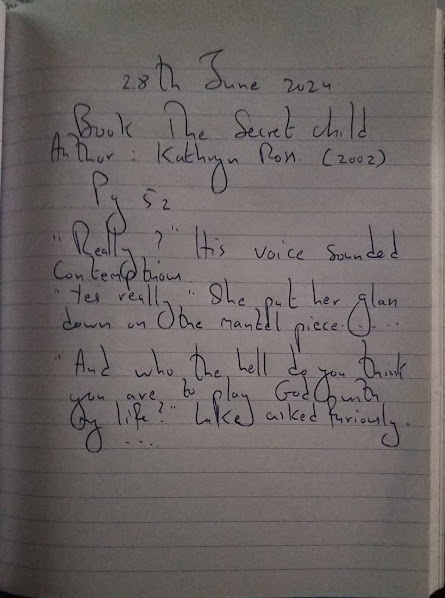 28th June 2024
Book The Secret child
Author : Kathryn Ross. (2002)
Pg 52
"Really?" His voice sounded
Contemptious.
"Yes really" She put her glass
down on the mantel piece.....
"And who the hell do you think
you are to play God with
my life?" Luke asked furiously.
....